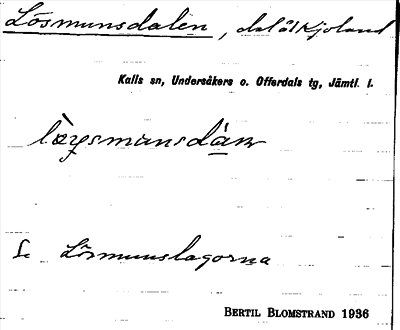 Lösmunsdalen, dal å Kjoland
Kalls sn, Undersåkers o. Offerdals tg, Jämtl. l.
S. Lösmunslagorna
BERTIL BLOMSTRAND 1936